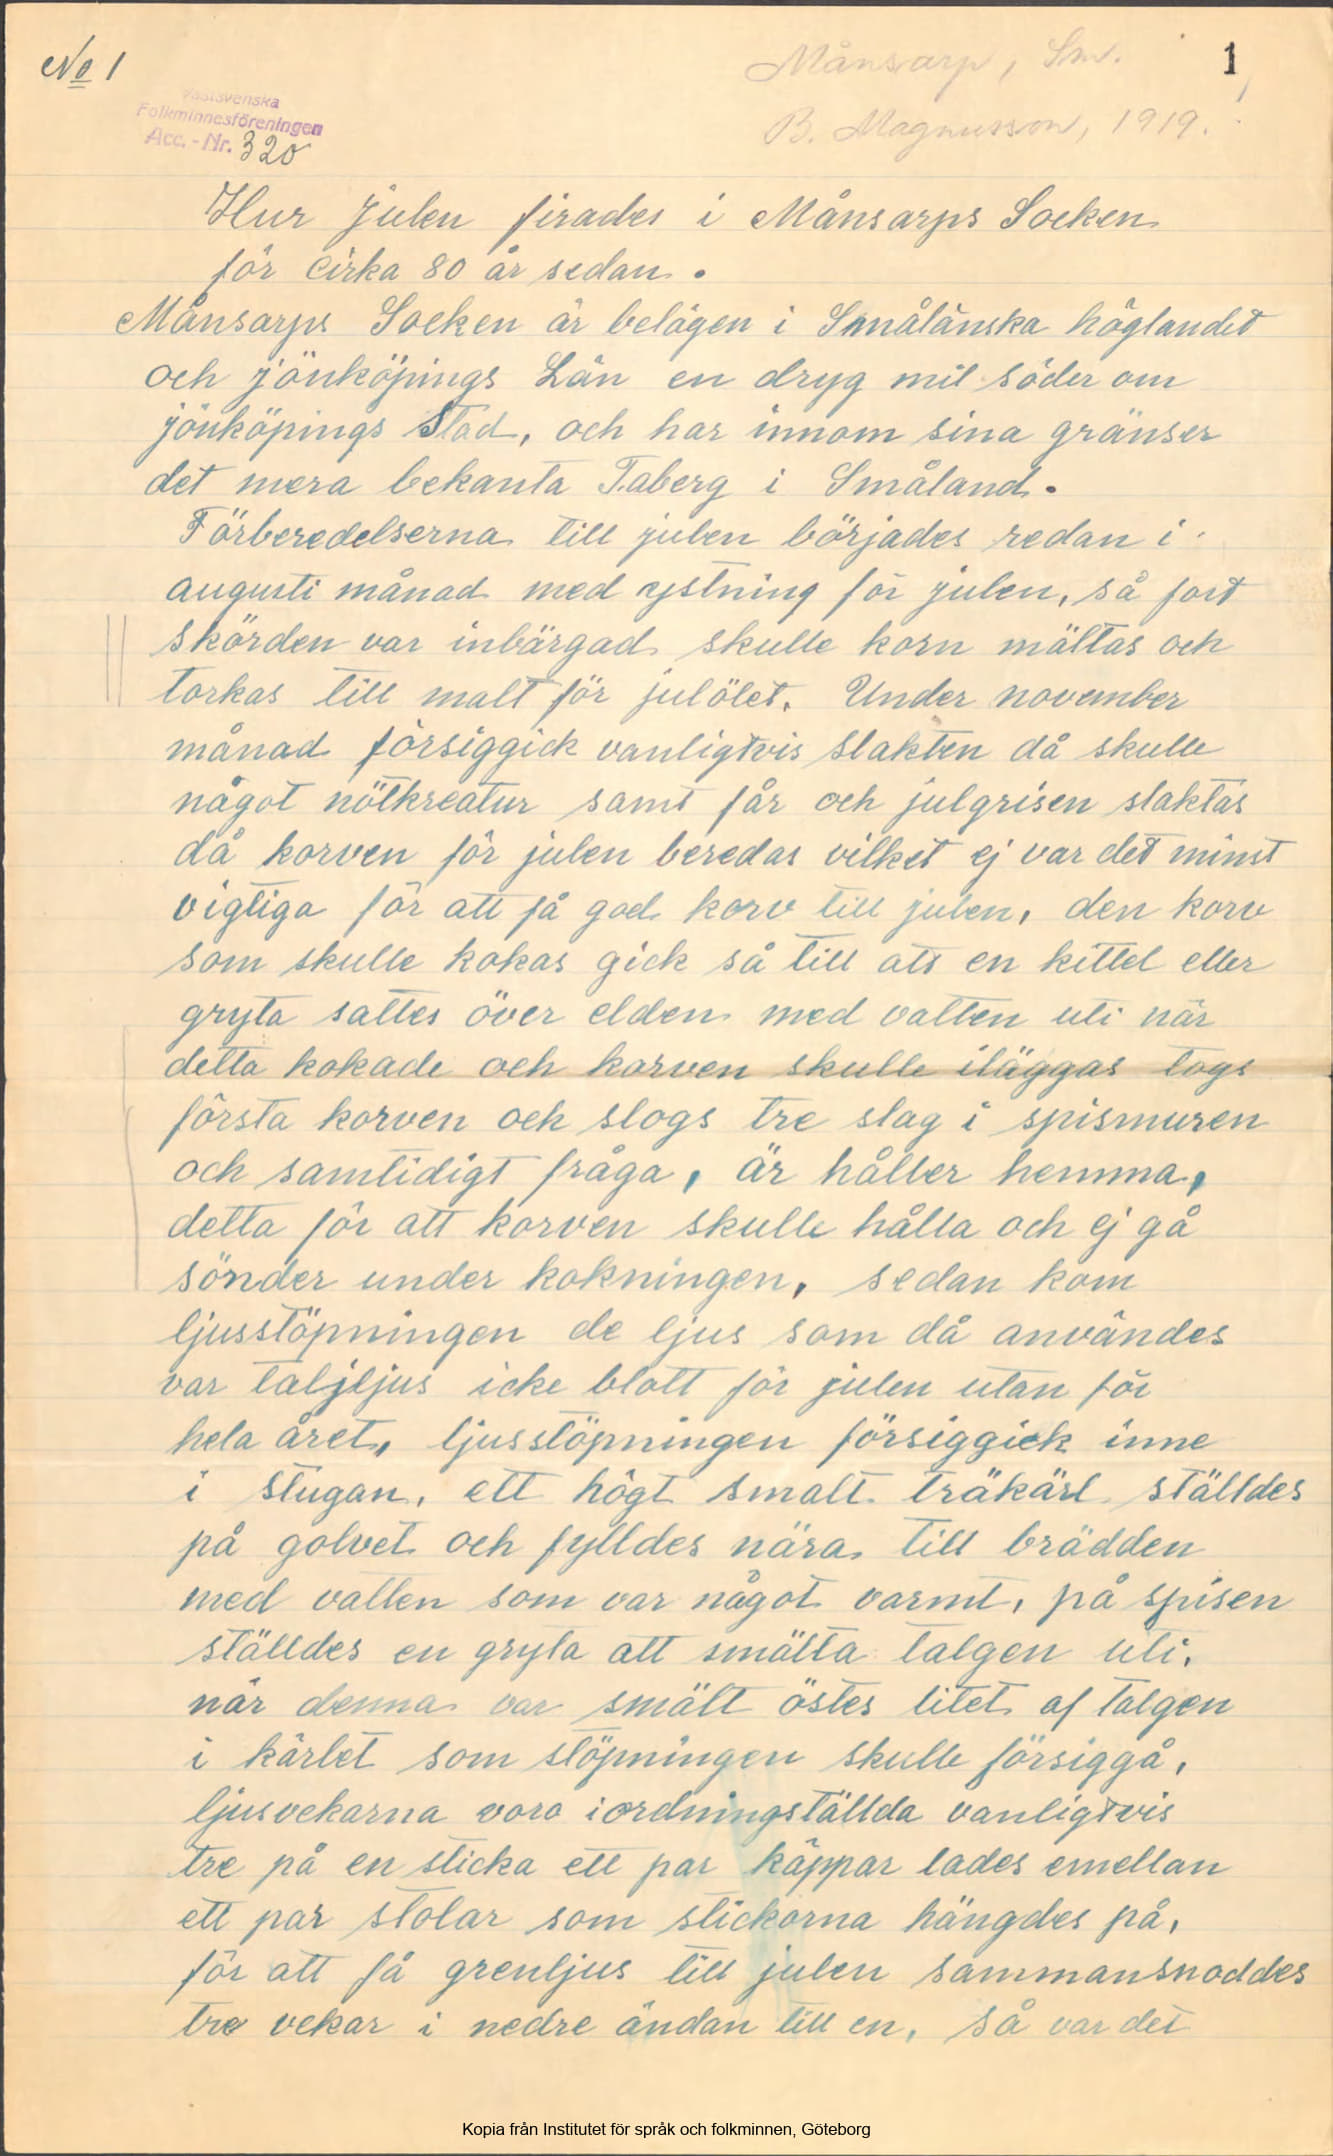 No 1
Månsarp, Sm.
1
Västsvenska
Folkminnesföreningen
Acc.-Nr. 320
B. Magnusson, 1919.
Hur Julen firades i Månsarps Socken
för Cirka 80 år sedan.
Månsarps Socken är belägen i Småländska höglandet
och jönköpings Län en dryg mil söder om
jönköpings Stad, och har innom sina gränser
det mera bekanta Taberg i Småland.
Förberedelserna till julen börjades redan i
augusti månad med ystning för julen, så fort
skörden var inbärgad skulle korn mältas och
torkas till malt för julölet. Under november
månad försiggick vanligtvis slakten då skulle
något nötkreatur samt får och julgrisen slaktas
då korven för julen beredas vilket ej var det minst
vigtiga för att få god korv till julen, den korv
som skulle kokas gick så till att en kittel eller
gryta sattes över elden med vatten uti när
detta kokade och korven skulle iläggas togs
första korven och slogs tre slag i spismuren
och samtidigt fråga, är håller hemma,
detta för att korven skulle hålla och ej gå
sönder under kokningen, sedan kom
ljusstöpningen de ljus som då användes
var taljljus icke blott för julen utan för
hela året, ljusstöpningen försiggick inne
i stugan, ett högt smalt träkärl ställdes
på golvet och fylldes nära till brädden
med vatten som var något varmt, på spisen
ställdes en gryta att smälta talgen uti.
når denna var smält östes litet af talgen
i kärlet som stöpningen skulle försiggå,
ljusvekarna voro iordningställda vanligtvis
tre på en sticka ett par käppar lades emellan
ett par stolar som stickorna hängdes på,
för att få grenljus till julen sammansnoddes
tre vekar i nedre ändan till en, så var det
Kopia från Institutet för språk och folkminnen, Göteborg